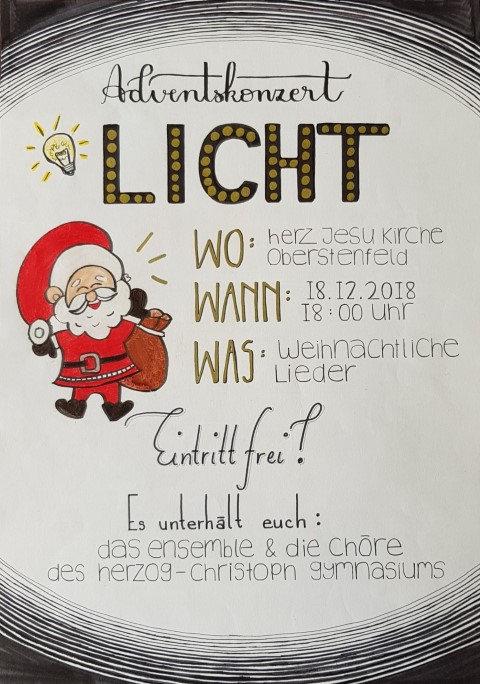 Adventskonzert
LICHT
WO: herz Jesu Kirche
Oberstenfeld
WANN: 18.12.2018
18:00 Uhr
WAS: Weihnachtliche
Lieder
Eintritt frei!
Es unterhält euch:
das ensemble & die Chöre
des herzog-Christoph gymnasiums